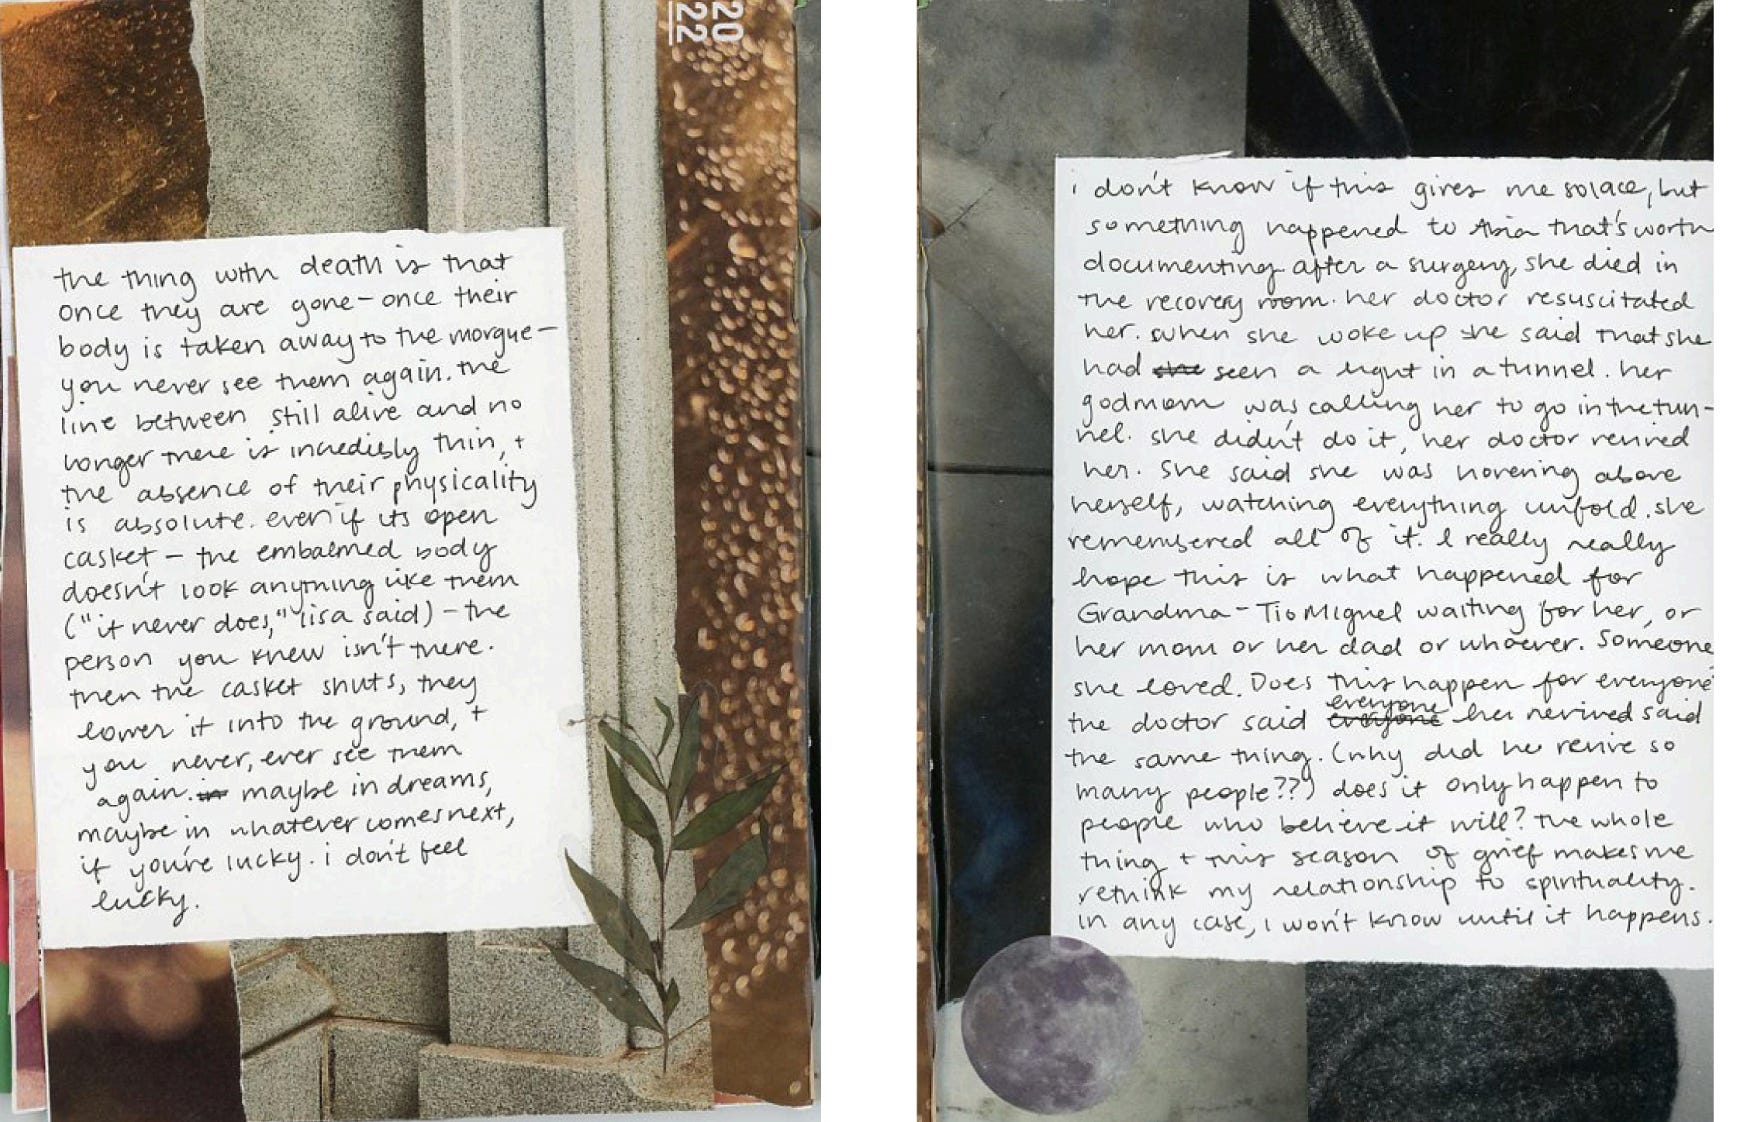 20
22
the thing with death is that
once they are gone – once their
body is taken away to the morgue –
you never see them again. the
line between still alive and no
longer there is incredibly thin, +
the absence of their physicality
is absolute. even if its open
casket – the embalmed body
doesn't look anything like them
("it never does," lisa said) – the
person you knew isn't there.
then the casket shuts, they
lower it into the ground, +
you never, ever see them
again. in maybe in dreams,
maybe in whatever comes next,
if you're lucky. i don't feel
lucky.
i don't know if this gives me solace, but
something happened to that's worth
documenting. after a surgery, she died in
the recovery room. her doctor resuscitated
her. when she woke up she said that she
had she seen a light in a tunnel. her
godmom was calling her to go in the tun-
nel. she didn't do it, her doctor revived
her. She said she was hovering above
herself, watching everything unfold. she
remembered all of it. I really really
hope this is what happened for
Grandma – Tio Miguel waiting for her, or
her mom or her dad or whoever. Someone
she loved. Does this happen for everyone?
everyone
the doctor said everyone he revived said
the same thing. (why did he revive so
many people??) does it only happen to
people who believe it will? the whole
thing + this season of grief makes me
rethink my relationship to spirituality.
in any case, i won't know until it happens.